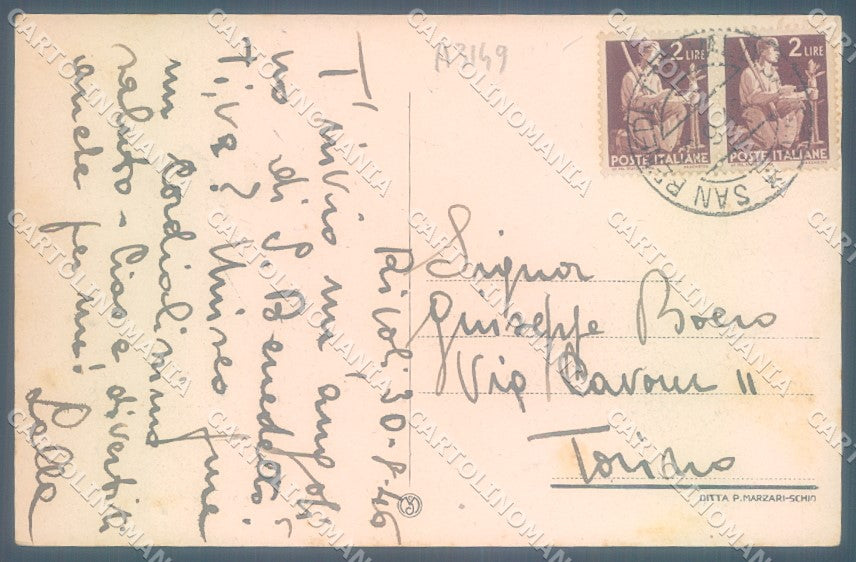 A3149
2 LIRE
POSTE ITALIANE
2 LIRE
POSTE ITALIANE
SAN
Rivoli, 30-8-46
T'invio un angolo
di S. Benedetto.
Ti va? Unisco
un cordialissimo
saluto - Ciao e divertiti
anche per me!
Lella
Signor
Giuseppe Boero
Via Cavour 11
Torino
DITTA P. MARZARI-SCHIO
CARTOLINOMANIA